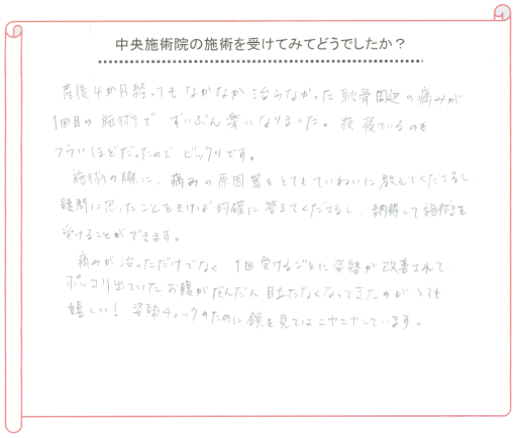 中央施術院の施術を受けてみてどうでしたか？
産後4か月経ってもなかなか治らなかった恥骨周辺の痛みが
1回目の施術で ずいぶん楽になりました。夜 寝ているのも
ツライほどだったので ビックリです。
施術の際に、痛みの原因等をとてもていねいに教えてくださるし
疑問に思ったことをきけば的確に答えてくださるし、納得して施術を
受けることができます。
痛みが治っただけでなく、1回受けるごとに姿勢が改善されて、
ポッコリ出ていたお腹がだんだん目立たなくなってきたのがとても
嬉しい！ 姿勢チェックのために鏡を見てはニヤニヤしています。